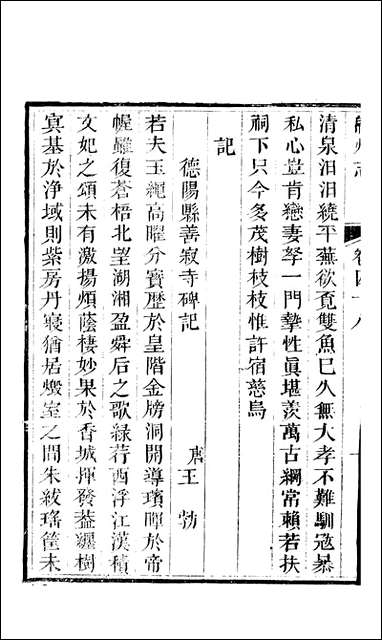 清泉汩汩繞平蕪欲覓雙魚已久無大孝不難馴寇暴
私心豈肯戀妻孥一門摯性眞堪羨萬古綱常賴若扶
祠下只今冬茂樹枝枝惟許宿慈烏
記
德陽縣善寂寺碑記
唐王勃
若夫玉繩高曜分寶歷於皇階金牓洞開導璸暉於帝
幄雖復蒼梧北望湖湘盈舜后之歌綠荇西浮江漢積
文妃之頌未有激揚煩蔭棲妙果於香城揮發葢纏樹
寘基於浄域則紫房丹寢猶居燬室之間朱紱瑤筐未
卷四十八